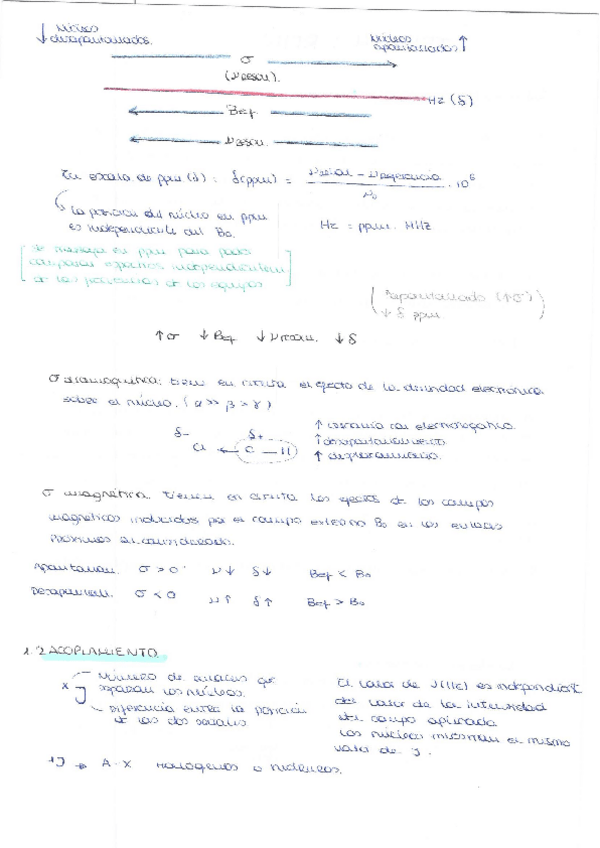 ↓ Núcleos desapantallados.
Núcleos apantallados ↑
σ
(ν reson).
Hz (δ)
Bef.
ν reson.
En escala de ppm (δ): δ(ppm) = (ν señal - ν referencia / ν₀) · 10⁶
La posición del núcleo en ppm
es independiente del B₀.
Hz = ppm · MHz
Se maneja en ppm para poder
comparar espectros independientem
de las potencias de los equipos
(Apantallado (↑σ)
↓ δ ppm
↑σ ↓Bef ↓ν reson. ↓δ
σ diamagnética: tiene en cuenta el efecto de la densidad electrónica
sobre el núcleo. (α >> β > γ)
δ- δ+
Cl ← C — H
↑ cercanía con electronegativo.
↑ desapantallamiento
↑ desplazamiento.
σ magnética. Tienen en cuenta los efectos de los campos
magnéticos inducidos por el campo externo B₀ en los enlaces
próximos al considerado.
Apantallam. σ > 0 ν↓ δ↓ Bef < B₀
Desapantall. σ < 0 ν↑ δ↑ Bef > B₀
1.2 ACOPLAMIENTO.
xJ
Número de enlaces que
separan los núcleos.
Diferencia entre la posición
de las dos señales
El valor de J(Hz) es independient
del valor de la intensidad
del campo aplicado
Los núcleos muestran el mismo
valor de J.
¹J → A-X Halógenos o